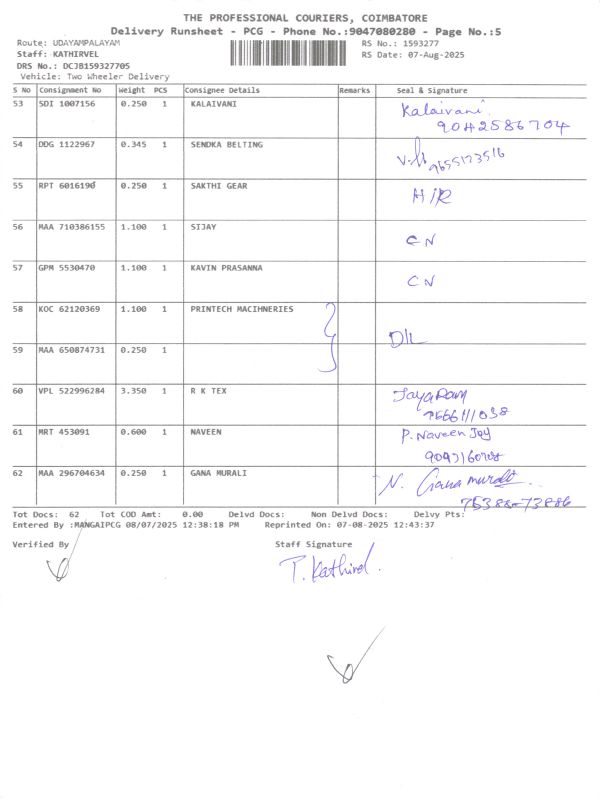 THE PROFESSIONAL COURIERS, COIMBATORE
Delivery Runsheet - PCG - Phone No.:9047080280 - Page No.:5
Route: UDAYAMPALAYAM RS No.: 1593277
Staff: KATHIRVEL RS Date: 07-Aug-2025
DRS No.: DCJB159327705
Vehicle: Two Wheeler Delivery
S No Consignment No Weight PCS Consignee Details Remarks Seal & Signature
53 SDI 1007156 0.250 1 KALAIVANI Kalaivani
9042586704
54 DDG 1122967 0.345 1 SENDKA BELTING
9655173516
55 RPT 6016190 0.250 1 SAKTHI GEAR H/R
56 MAA 710386155 1.100 1 SIJAY CN
57 GPM 5530470 1.100 1 KAVIN PRASANNA CN
58 KOC 62120369 1.100 1 PRINTECH MACIHNERIES
D/L
59 MAA 650874731 0.250 1
60 VPL 522996284 3.350 1 R K TEX Jayaram
61 MRT 453091 0.600 1 NAVEEN P. Naveen Joy
62 MAA 296704634 0.250 1 GANA MURALI N. Gana murali
75388-73886
Tot Docs: 62 Tot COD Amt: 0.00 Delvd Docs: Non Delvd Docs: Delvy Pts:
Entered By :MANGAIPCG 08/07/2025 12:38:18 PM Reprinted On: 07-08-2025 12:43:37
Verified By Staff Signature
T. Kathirvel.